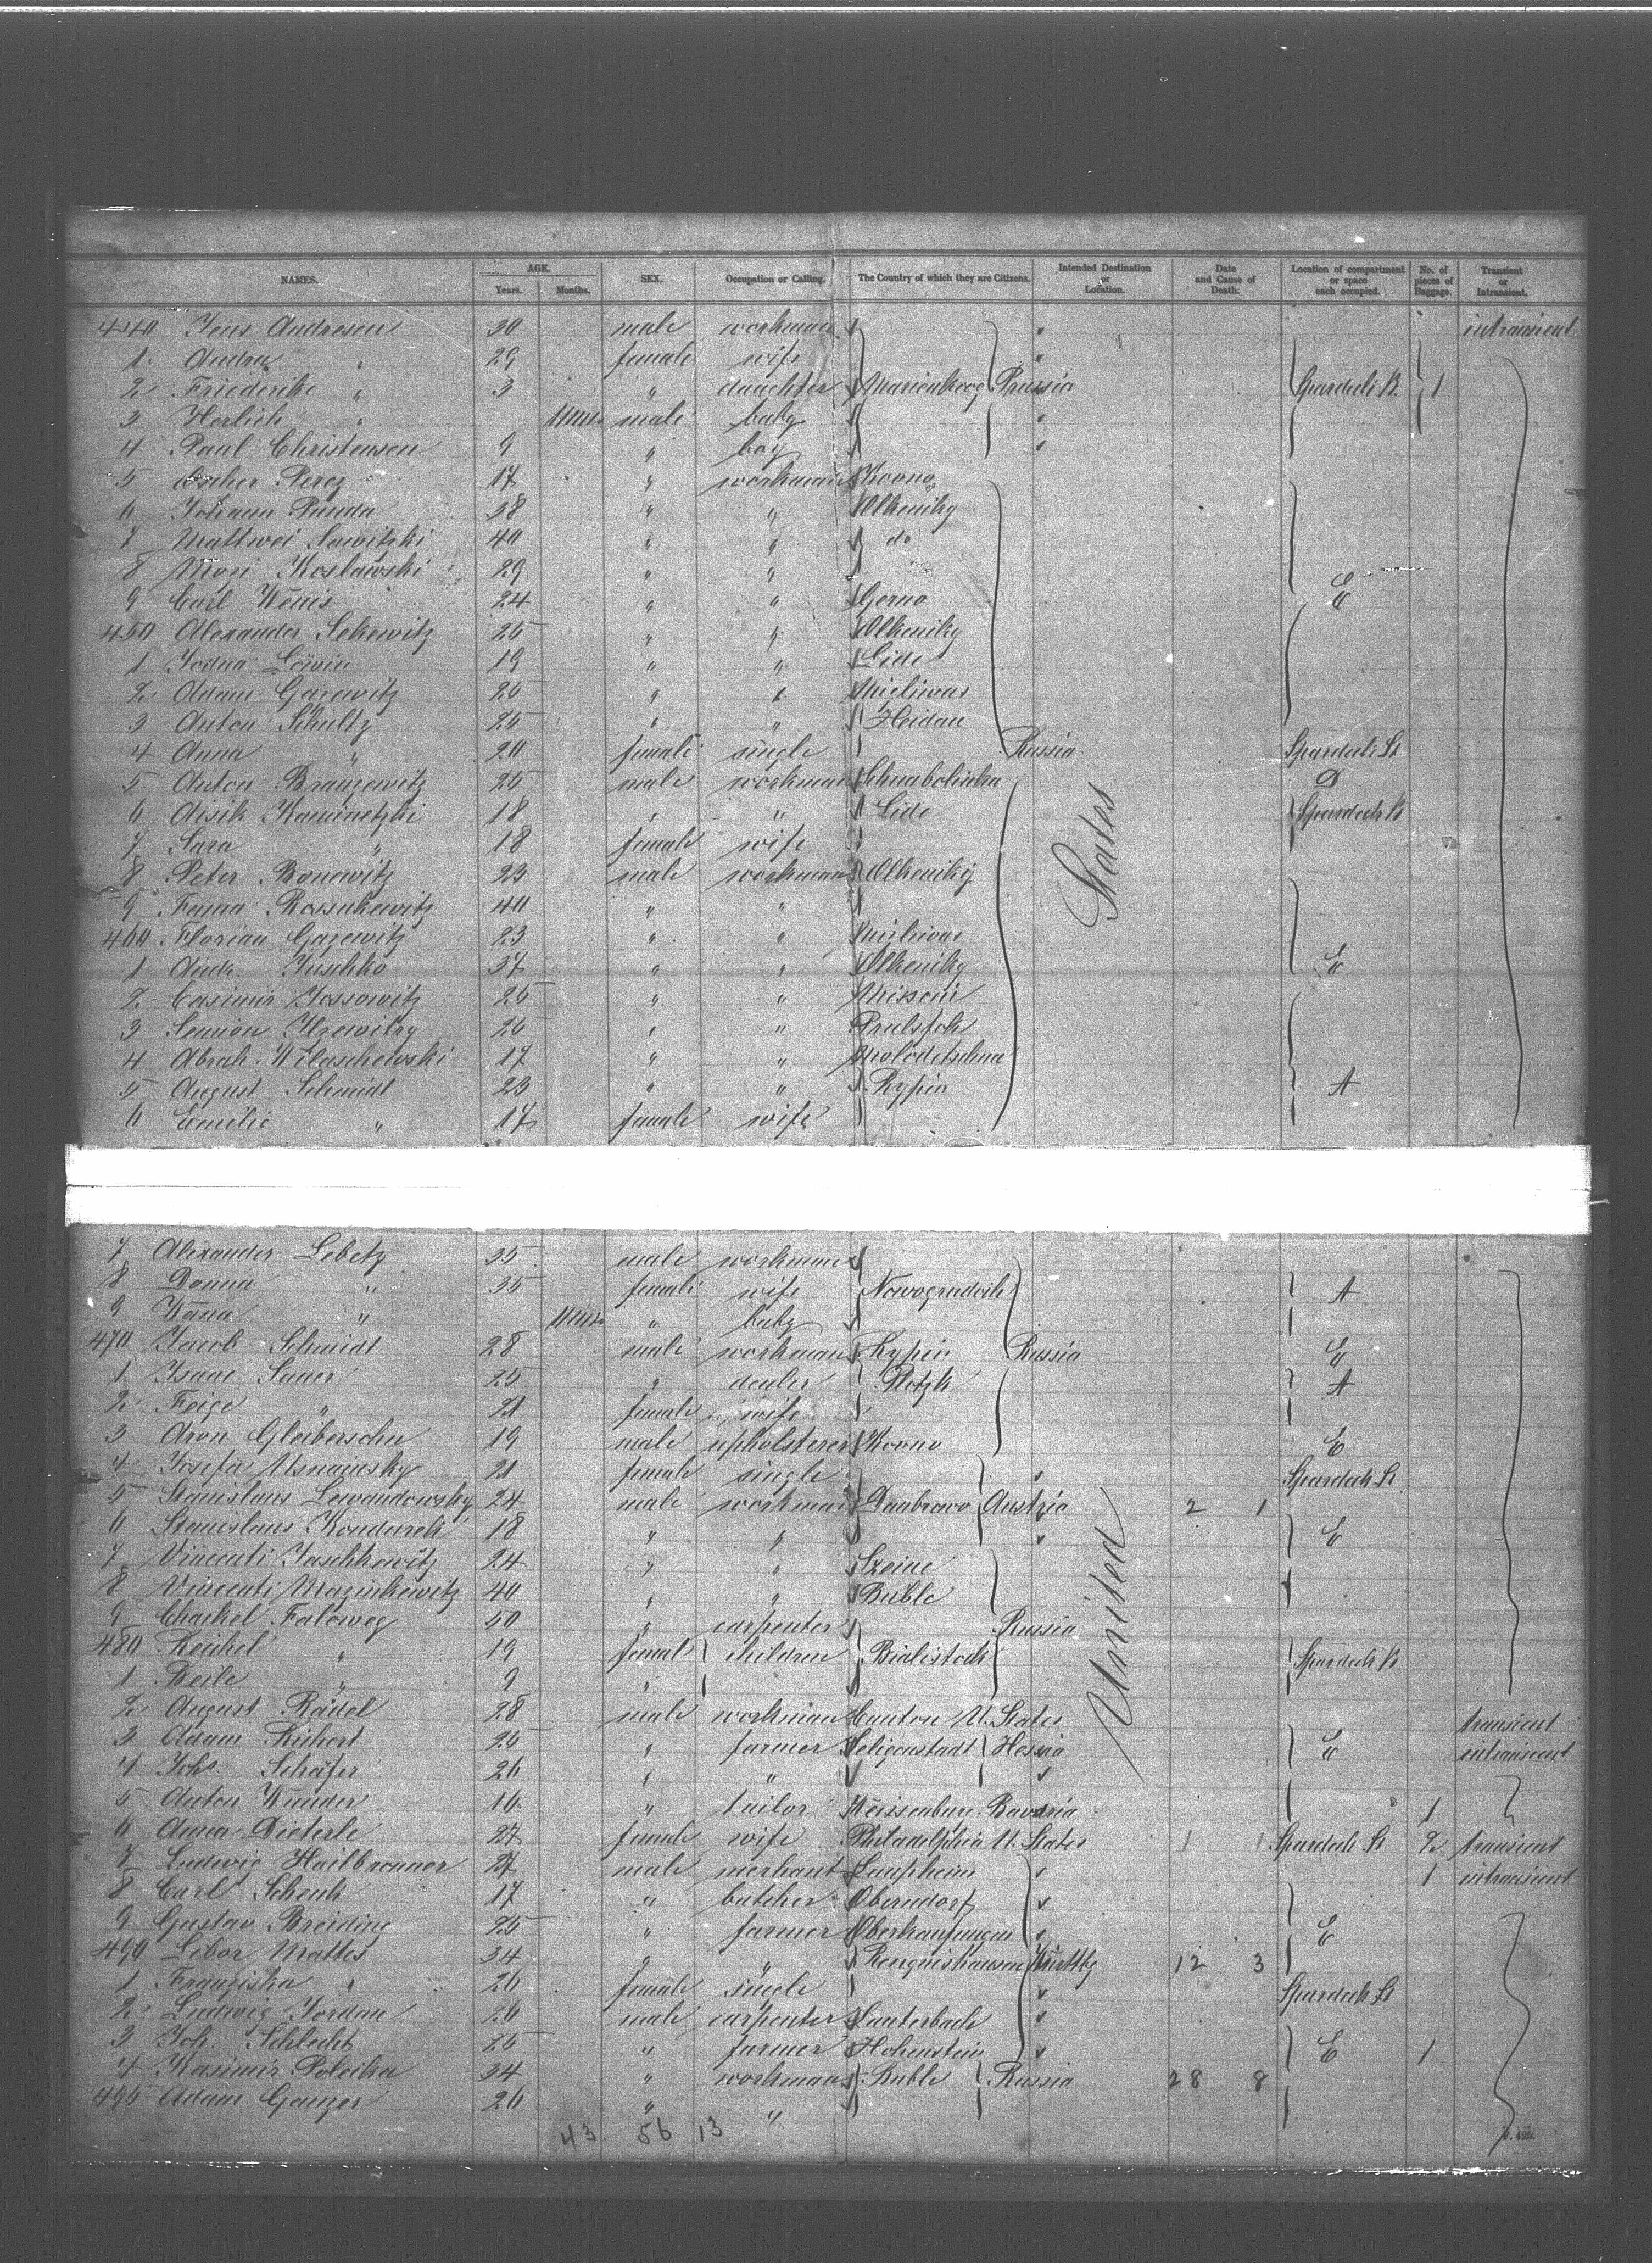 NAMES. AGE. Years. Months. SEX. Occupation or Calling. The Country of which they are Citizens. Intended Destination or Location. Date and Cause of Death. Location of compartment or space each occupied. No. of pieces of Baggage. Transient or Intransient.
440 Jens Andresen 30 male workman intransient
1 Andrea " 29 female wife
2 Friederike " 3 " daughter Marienkoog Prussia Spardeck St. 1
3 " male baby
4 Paul Christensen 9 " boy
5 Ascher Perez 17 " workman Kovno
6 Johann Punda 38 " " Olkeniky
7 Mattwei Sawitzki 40 " " do
8 Mozi Koslawski 29 " "
9 Carl Wenis 24 " " Gerno E
450 Alexander Sekewitz 25 " " Olkeniky
1 Löwin 19 " " Lide
2 Adam Gazewitz 25 " "
3 Anton Schultz 25 " " Heidau
4 Anna " 20 female single Russia Spardeck St
5 Anton Branzewitz 25 male workman D
6 Aisik Kaminetzki 18 " " Lide Spardeck St
7 Sara " 18 female wife
8 Peter Bonewitz 23 male workman Olkeniky
9 40 " "
460 Florian Gazewitz 23 " "
1 Andr. Juschko 37 " " Olkeniky E
2 Casimir Jossowitz 25 " "
3 26 " "
4 Abrah. Wilaschewski 17 " " Molodetschna
5 August Schmidt 23 " " Rypin A
6 Emilie " 17 female wife
7 Alexander Lebetz 35 male workman
8 Donna " 35 female wife Nowogrudock A
9 " " baby
470 Jacob Schmidt 28 male workman Rypin Russia E
1 Isaac Sauer 25 " dealer Plotzk A
2 Feige " 21 female wife
3 Aron Gleiberschn 19 male upholsterer Kovno E
4 Josefa 21 female single Spardeck St
5 Stanislaus Lewandowsky 24 male workman Dambrowo Austria 2 1
6 Stanislaus Kondureck 18 " " E
7 Vincenti Jaschkewitz 24 " "
8 Vincenti Mazinkewitz 40 " " Buble
9 Chackel Faloweg 50 " carpenter Russia
480 " 19 female children Bialistock Spardeck St
1 Beile " 9 "
2 August Rädel 28 male workman Canton U. States transient
3 Adam Richert 25 " farmer Seligenstadt Hessia E intransient
4 Johs. Schäfer 26 " "
5 Anton Wunder 16 " tailor Weissenburg Bavaria 1
6 Anna Dieterle 27 female wife Philadelphia U. States 1 1 Spardeck St 2 transient
7 Ludwig Hailbronner 27 male merchant Laupheim 1 intransient
8 Carl Schenk 17 " butcher Oberndorf
9 Gustav Breiding 25 " farmer E
490 Libor Mattes 34 " " Renquishausen Württbg 12 3
1 Franziska " 26 female single Spardeck St
2 Ludwig Jordan 26 male carpenter Lauterbach
3 Joh. Schlecht 25 " farmer Hohenstein E 1
4 Kasimir Poleika 34 " workman Buble Russia 28 8
495 Adam Ganzer 26 " "
United States
43 56 13